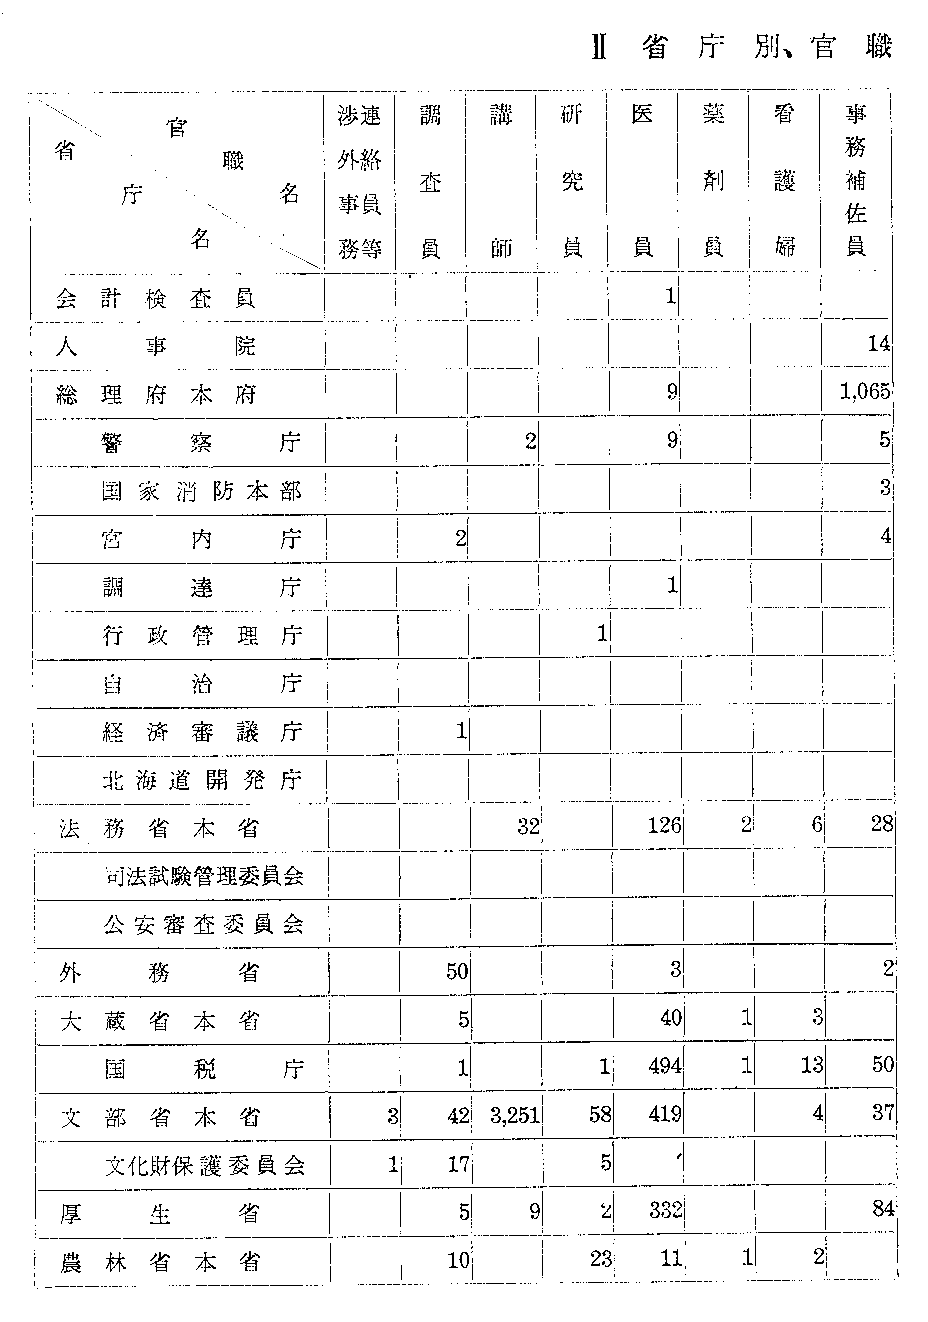 Ⅱ 省庁別、官職
省庁名 官職名 渉外事務 連絡員等 調査員 講師 研究員 医員 薬剤員 看護婦 事務補佐員
会計検査員 1
人事院 14
総理府本府 9 1,065
警察庁 2 9 5
国家消防本部 3
宮内庁 2 4
調達庁 1
行政管理庁 1
自治庁
経済審議庁 1
北海道開発庁
法務省本省 32 126 2 6 28
司法試験管理委員会
公安審査委員会
外務省 50 3 2
大蔵省本省 5 40 1 3
国税庁 1 1 494 1 13 50
文部省本省 3 42 3,251 58 419 4 37
文化財保護委員会 1 17 5
厚生省 5 9 2 332 84
農林省本省 10 23 11 1 2